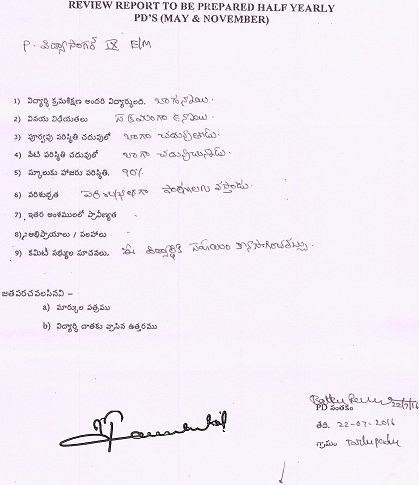 REVIEW REPORT TO BE PREPARED HALF YEARLY
PD'S (MAY & NOVEMBER)
P. విద్యాసాగర్ IX E/M
1) విద్యార్థి క్రమశిక్షణ అందరి విద్యార్థులది. బాగున్నాయి.
2) వినయ విధేయతలు
3) పూర్వపు పరిస్థితి చదువులో బాగా చదువుతాడు.
4) నేటి పరిస్థితి చదువులో బాగా చదువుచున్నాడు.
5) స్కూలుకు హాజరు పరిస్థితి. 90%
6) పరిశుభ్రత పరిశుభ్రంగా వస్తాడు.
7) ఇతర అంశములలో ప్రావీణ్యత
8) అభిప్రాయాలు / సలహాలు
9) కమిటీ సభ్యుల సూచనలు. ఈ విద్యార్థికి సహాయం కొనసాగించవచ్చు.
జతపరచవలసినవి –
a) మార్కుల పత్రము
b) విద్యార్థి దాతకు వ్రాసిన ఉత్తరము
22/7/16
PD సంతకం
తేది. 22-07-2016
గ్రామం